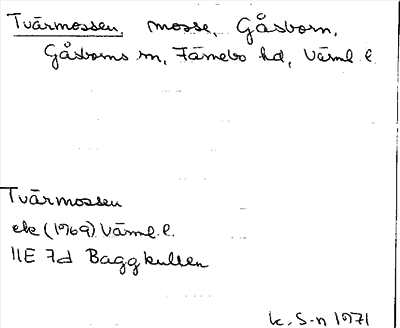 Tvärmossen, mosse, Gåsborn,
Gåsborns sn, Färnebo hd, Värml. l.
Tvärmossen
ek (1969) Värml. l.
11E 7d Baggkullen
K. S-n 1971